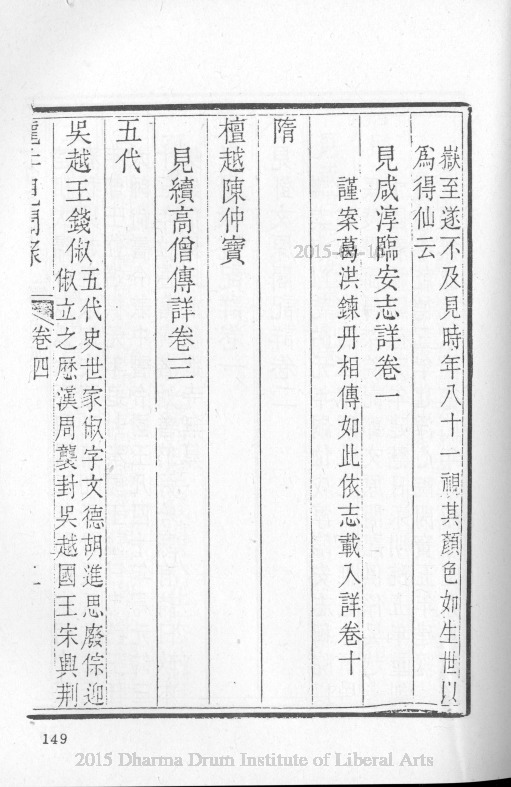 嶽至遂不及見時年八十一視其顏色如生世以
爲得仙云
見咸淳臨安志詳卷一
謹案葛洪鍊丹相傳如此依志載入詳卷十
隋
檀越陳仲寶
見續高僧傳詳卷三
五代
吳越王錢俶
五代史世家俶字文德胡進思廢倧迎
俶立之歷漢周襲封吳越國王宋興荆
卷四
149
2015 Dharma Drum Institute of Liberal Arts